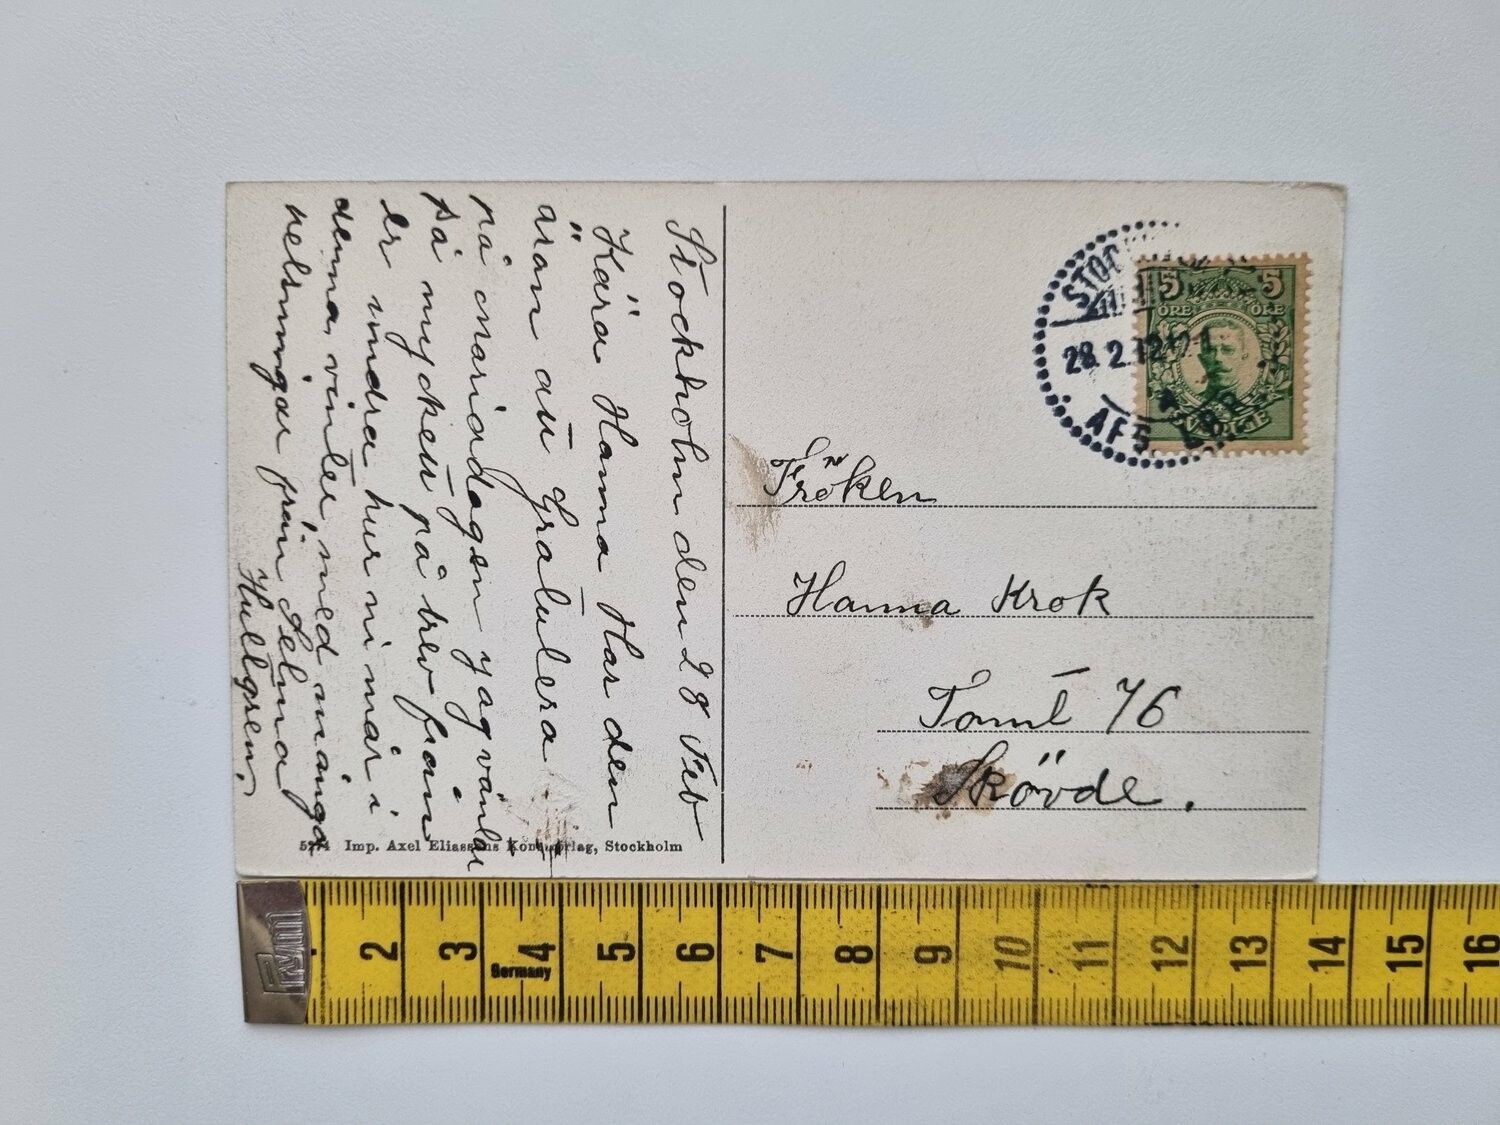 Stockholm den 28 Feb
Kära Hanna Har den
äran att Gratulera
på mariadagen jag väntar
så mycket på brev från
er undra hur ni mår i
denna vinter, med många
helsningar från Selma
Hullgren,
5274 Imp. Axel Eliassons Konstförlag, Stockholm
STOCKHOLM
28.2.12
AFG
5 5
ÖRE ÖRE
SVERIGE
Fröken
Hanna Krok
Tomt 76
Skövde.
Prym
2 3 4 5 6 7 8 9 10 11 12 13 14 15 16
Germany